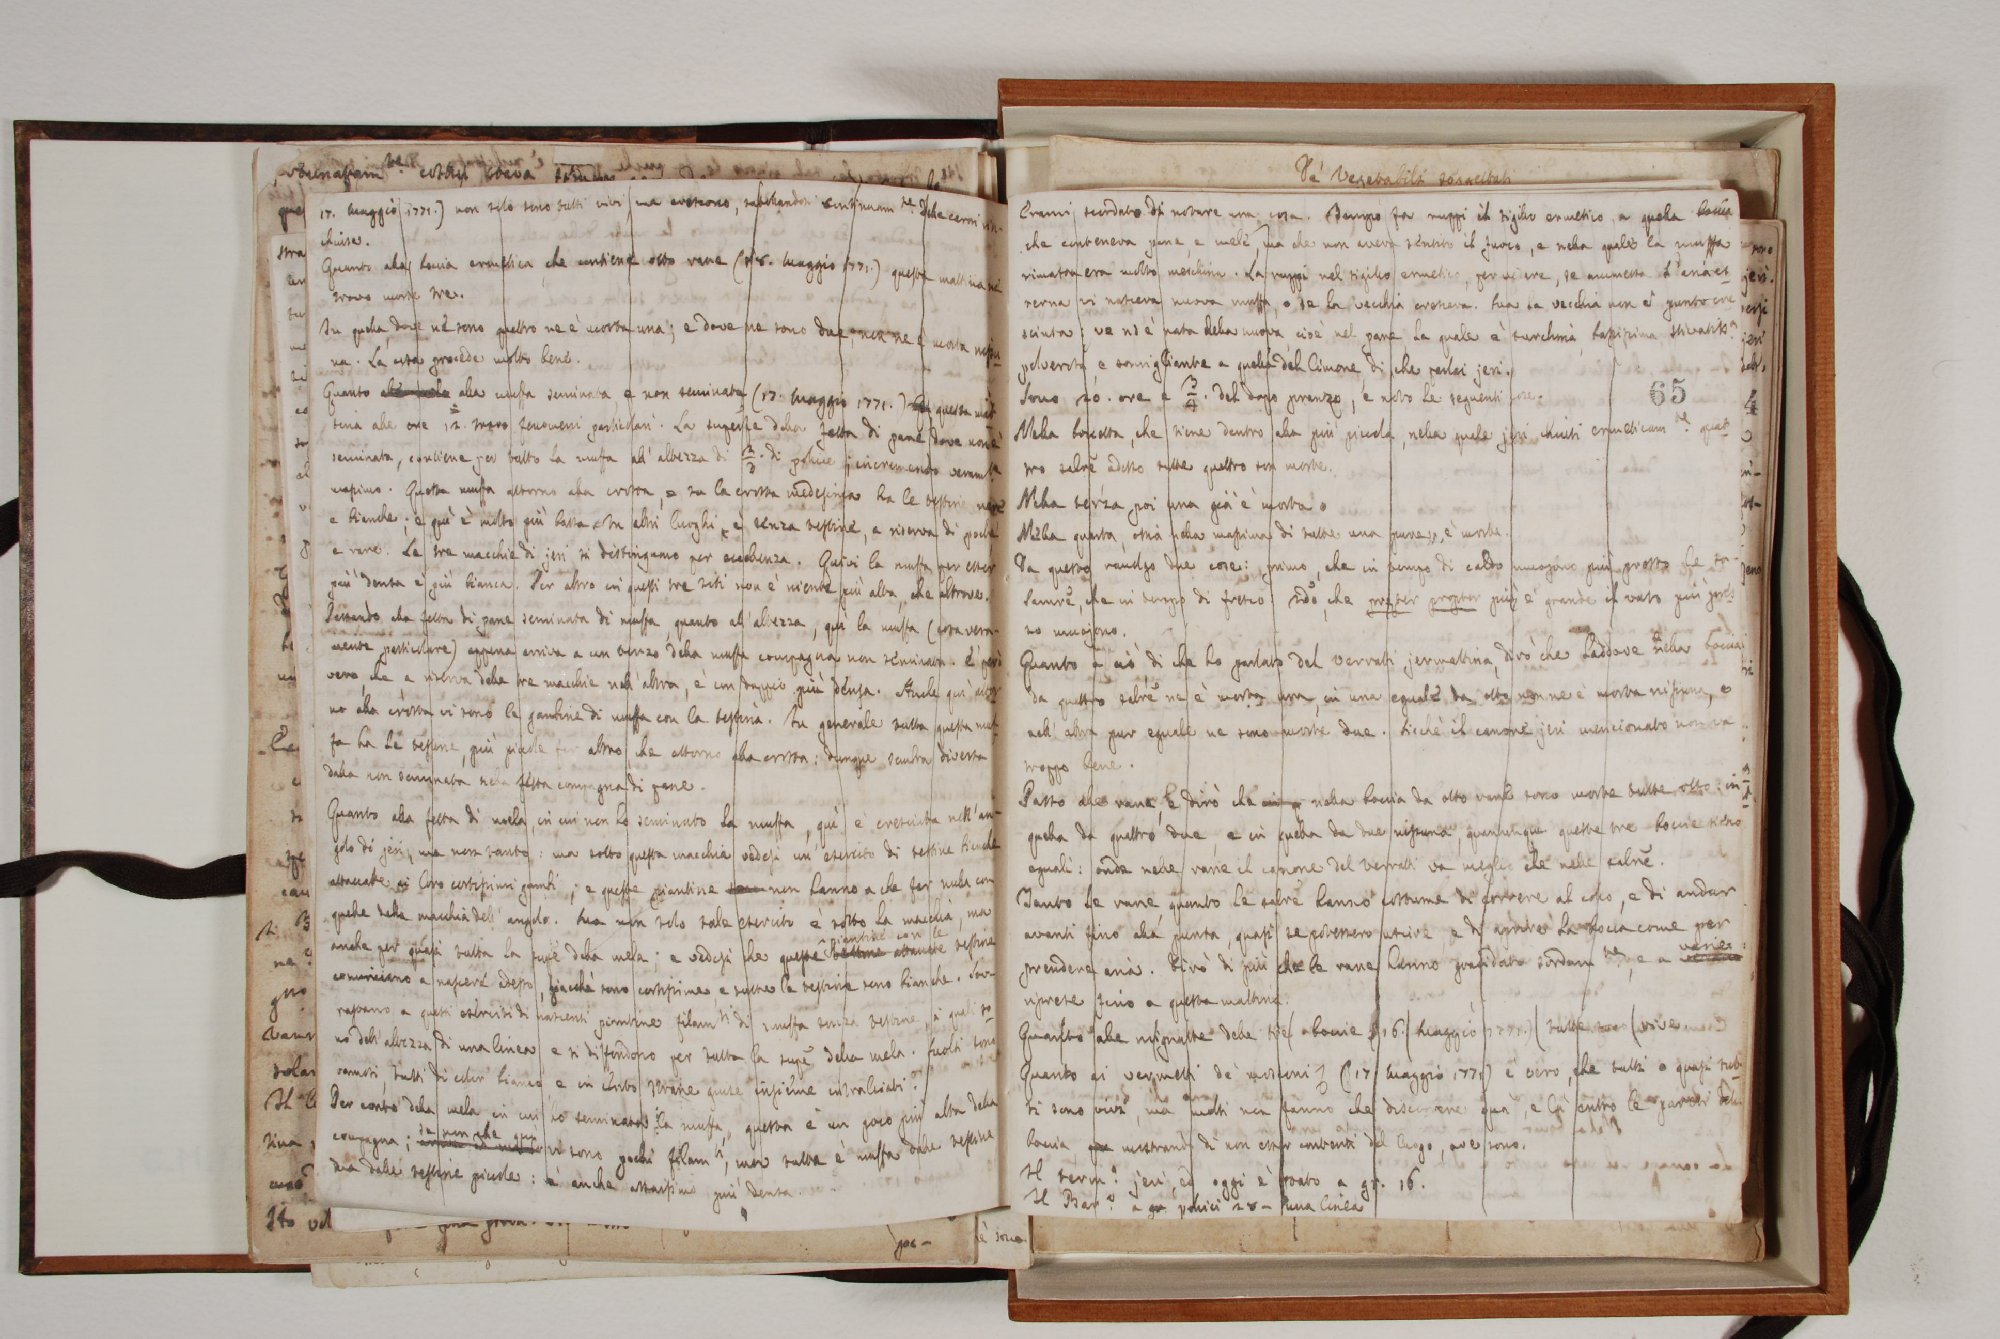 17. Maggio 1771.) non solo sono tutti vivi, ma crescono, continuam.te delle carni rin-
chiuse.
Quanto alla boccia ermetica che contiene otto rane (18. Maggio 1771.) questa mattina ne
trovo morte tre.
In quella dove ne sono quattro ne è morta una; e dove ne sono due non ne è morta nessu-
na. La cosa procede molto bene.
Quanto alla muffa seminata e non seminata (17. Maggio 1771.) questa mat-
tina alle ore 12. trovo fenomeni particolari. La superfe della fetta di pane dove non è
seminata, contiene per tutto la muffa all'altezza di 2/3. di pollice, incremento veram.te
massimo. Questa muffa attorno alla crosta, e su la crosta medesima ha le testine nere
e bianche; e qui è molto più bassa. In altri luoghi è senza testine, a riserva di poche
e rare. Le tre macchie di jeri si distinguono per eccellenza. Quivi la muffa per esser
più densa è più bianca. Per altro in questi tre siti non è niente più alta, che altrove.
Passando alla fetta di pane seminata di muffa, quanto all'altezza, qui la muffa (cosa vera-
mente particolare) appena arriva a un terzo della muffa compagna non seminata. È però
vero, che a riserva delle tre macchie nell'altra, è un doppio più densa. Anche qui attor-
no alla crosta vi sono le piantine di muffa con la testina. In generale tutta questa muf-
fa ha le testine, più piccole per altro, che attorno alla crosta: dunque sembra diversa
dalla non seminata nella fetta compagna di pane.
Quanto alla fetta di mela, in cui non ho seminato la muffa, qui è cresciuta nell'an-
golo di jeri, ma non tanto: ma sotto questa macchia vedesi un esercito di testine bianche
attaccate ai loro cortissimi gambi; e queste piantine non hanno a che far nulla con
quelle della macchia dell'angolo. Ma non solo tale esercito è sotto la macchia, ma
anche per quasi tutta la supe della mela; e vedesi che queste piantine con le testine
cominciano a nascere adesso, giacchè sono cortissime, e tutte le testine sono bianche. Sov-
rastanno a questi eserciti di nascenti piantine filam.ti di muffa senza testine, i quali so-
no dell'altezza di una linea e si diffondono per tutta la supe della mela. Questi sono
ramosi, tutti di color bianco e in strane guise insieme intralciati.
Per conto della mela in cui ho seminato la muffa, questa è un poco più alta della
compagna; se non che qui vi sono pochi filam.ti, ma tutta è muffa dalle testine
ma dalle testine piccole: è anche assaissimo più densa.
De' Vegetabili
Erami scordato di notare una cosa. Tempo fa ruppi il sigillo ermetico, a quella boccia
che conteneva pane, e mele, ma che non aveva sentito il fuoco, e nella quale la muffa
rimasta era molto meschina. La ruppi nel sigillo ermetico, per vedere, se ammessa l'aria es-
terna vi nasceva nuova muffa, o se la vecchia cresceva. Ma la vecchia non è punto cre-
sciuta; ve n'è nata della nuova, cioè nel pane, la quale è turchina, bassissima
polverosa, e somigliante a quella del Limone, di che parlai jeri.
65
Sono 20. ore e 3/4. del dopo pranzo, e noto le seguenti cose.
Nella boccetta, che tiene dentro alla più piccola, nella quale jeri chiusi ermeticam.te quat-
tro salre adesso tutte quattro son morte.
Nella terza poi una già è morta.
Nella quarta, ossia nella massima di tutte una pure, è morta.
Da questo raccolgo due cose: primo, che in tempo di caldo muojono più presto le sa-
lamre, che in tempo di fresco: 2do, che propter propter più è grande il vaso più pres-
to muojono.
Quanto a ciò di che ho parlato del Verratti jermattina, dirò che laddove nella boccia
da quattro salre ne è morta una, in una eguale da otto non ne è morta nissuna, e
nell'altra pur eguale ne sono morte due. Sicchè il canone jeri mencionato non va
troppo bene.
Passo alle rane, e dirò che nella boccia da otto rane sono morte tutte otto: in
quella da quattro, due, e in quella da due nissuna, quantunque queste tre boccie siano
eguali: onde nelle rane il canone del Verratti va meglio che nelle salre.
Tanto le rane, quanto le salre hanno costume di correre al collo, e di andar
avanti fino alla punta, quasi se potessero uscire, e di aprire la bocca come per
prendere aria. Dirò di più che le rane hanno gracidato sordam.te, e a varie
riprese fino a questa mattina.
Quanto alle mignatte delle tre boccie (16. Maggio 1771.) tutte vive
Quanto ai vermetti de' mosconi (17. Maggio 1771.) è vero, che tutti o quasi tut-
ti sono vivi, ma molti non fanno che discorrere qua, e là entro le pareti della
boccia mostrando di non esser contenti del luogo, ove sono.
Il Term.o jeri, ed oggi è stato a gr. 16.
Il Bar.o a pollici 28 - una linea